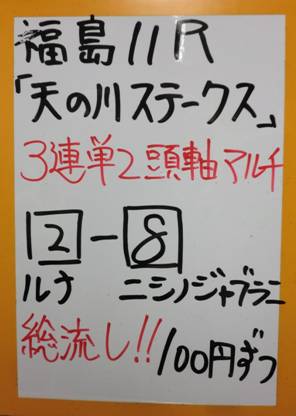 福島11R
「天の川ステークス」
3連単2頭軸マルチ
12-8
ルナ ニシノジャブラニ
総流し!! 100円ずつ